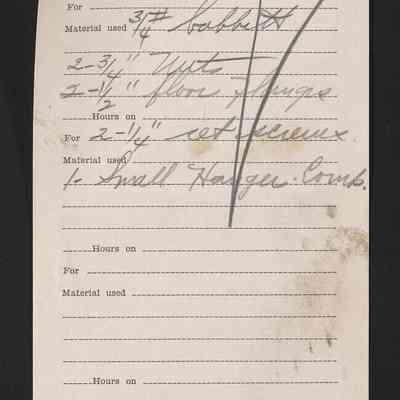 For
Material used 3/4 # babbitt
2-3/4" Nuts
2-1/2" floor flanges
Hours on
For 2-1/4" set screws
Material used
1- Small Hanger Comb.
Hours on
For
Material used
Hours on